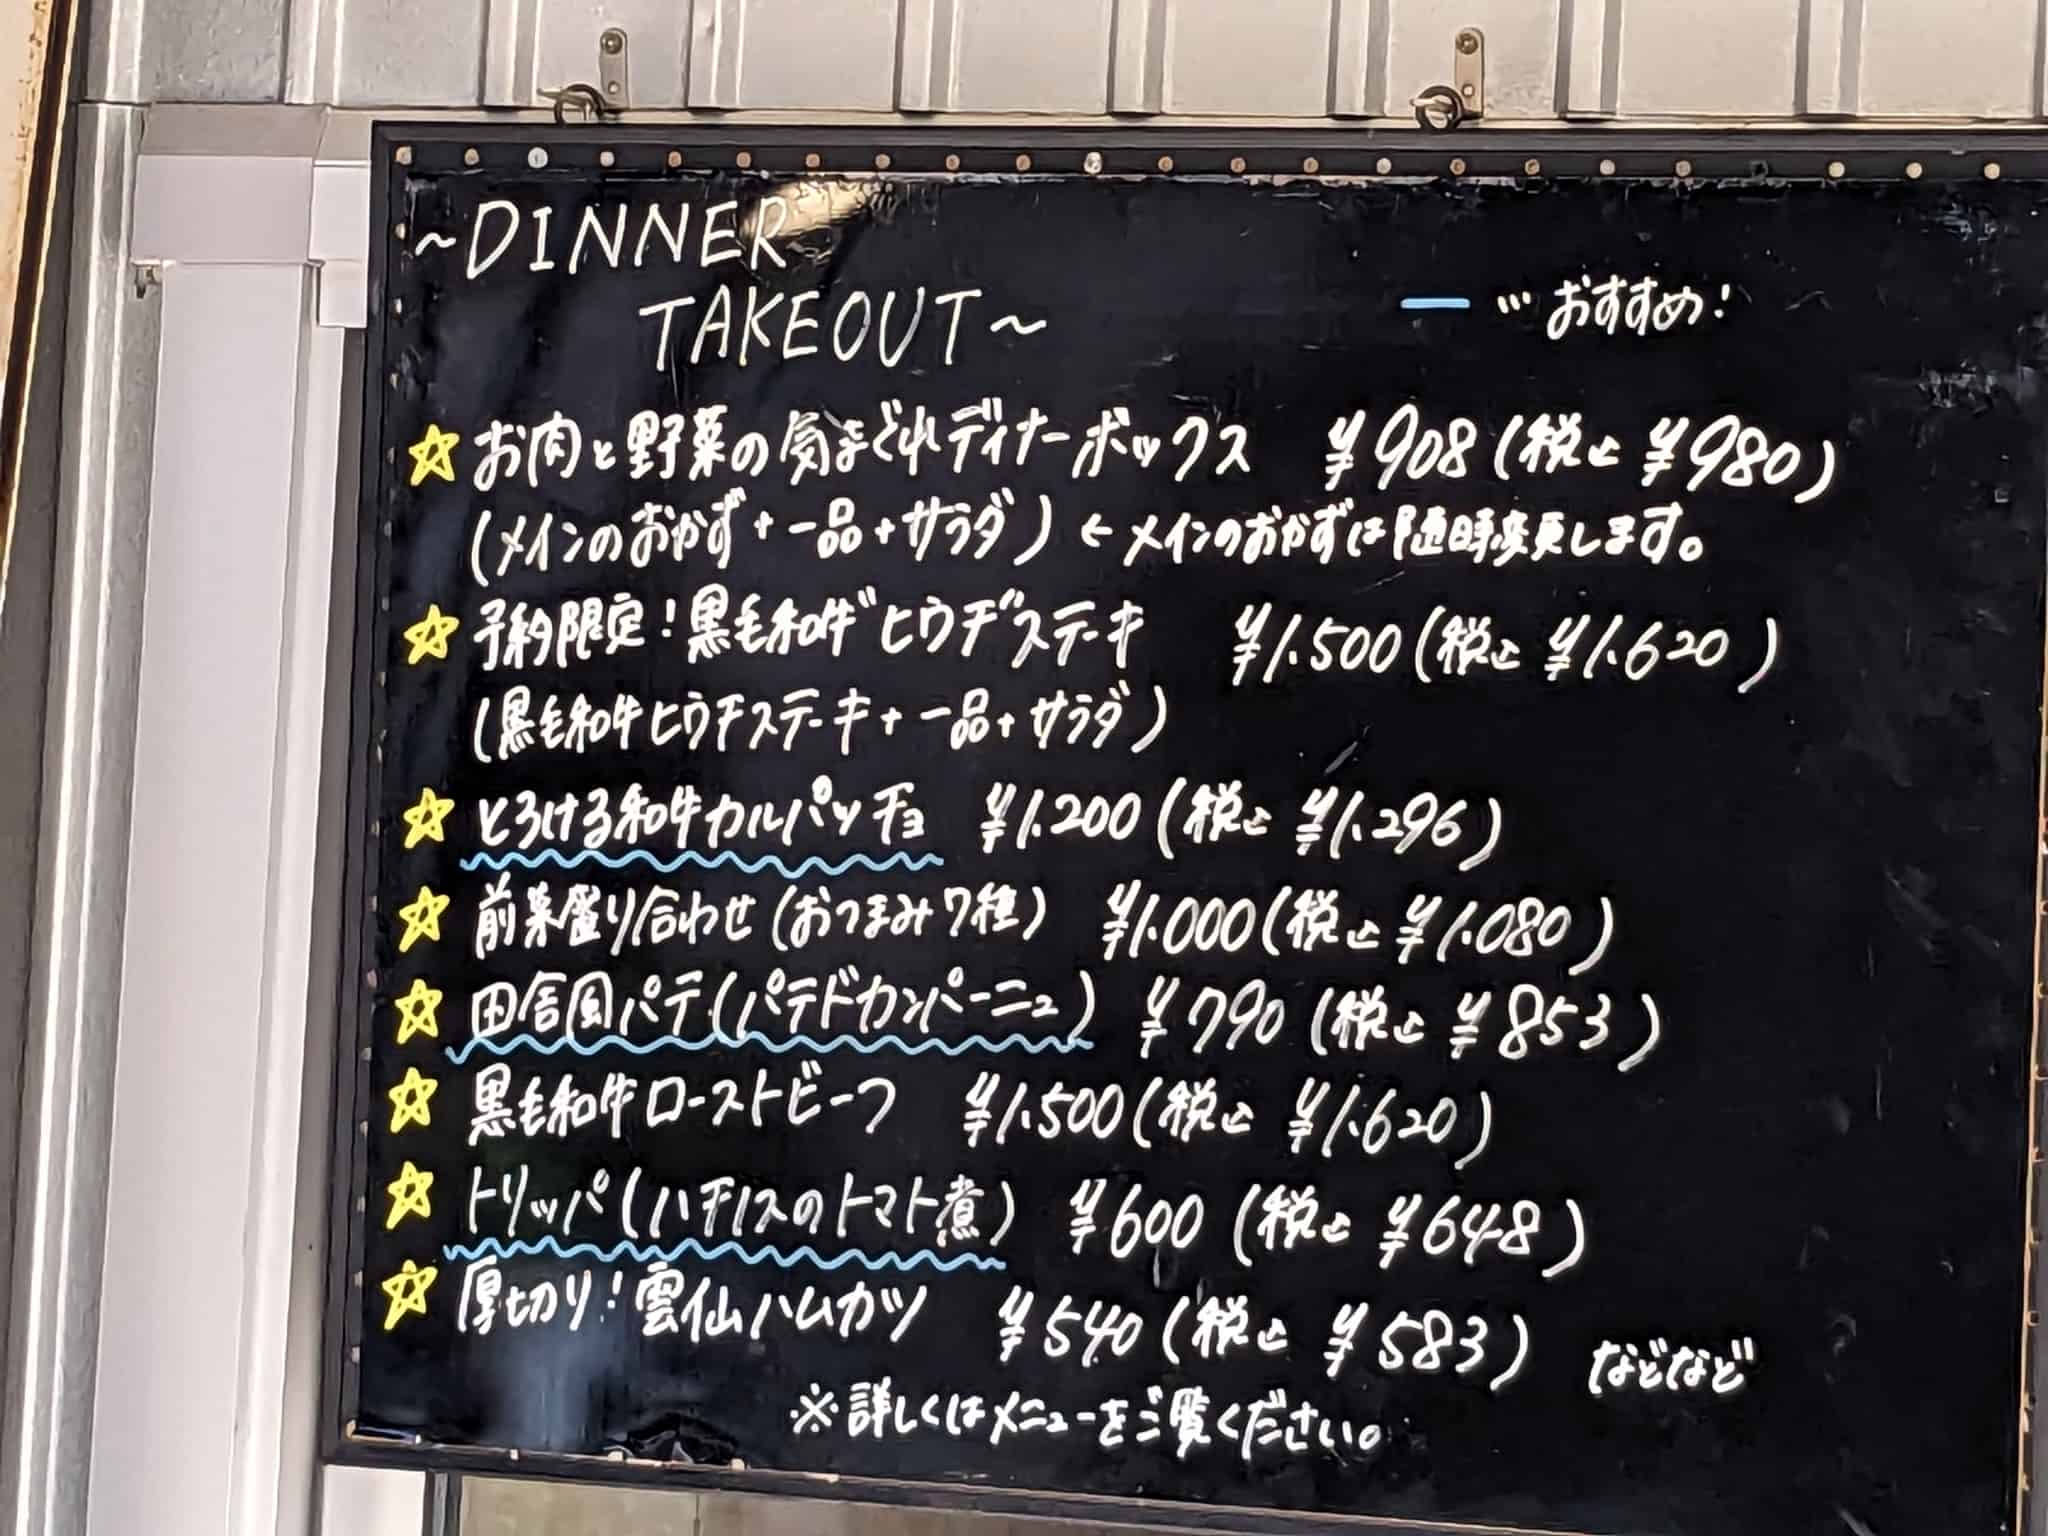 ~DINNER
TAKEOUT~
… おすすめ！
☆ お肉と野菜の気まぐれディナーボックス ¥908(税込¥980)
(メインのおかず+一品+サラダ) ← メインのおかずは随時変更します。
☆ 予約限定！黒毛和牛"ヒウチ"ステーキ ¥1.500(税込¥1.620)
(黒毛和牛ヒウチステーキ+一品+サラダ)
☆ とろける和牛カルパッチョ ¥1.200(税込¥1.296)
☆ 前菜盛り合わせ(おつまみ7種) ¥1.000(税込¥1.080)
☆ 田舎風パテ(パテドカンパーニュ) ¥790(税込¥853)
☆ 黒毛和牛ローストビーフ ¥1.500(税込¥1.620)
☆ トリッパ(ハチノスのトマト煮) ¥600(税込¥648)
☆ 厚切り！雲仙ハムカツ ¥540(税込¥583) などなど
※詳しくはメニューをご覧ください。